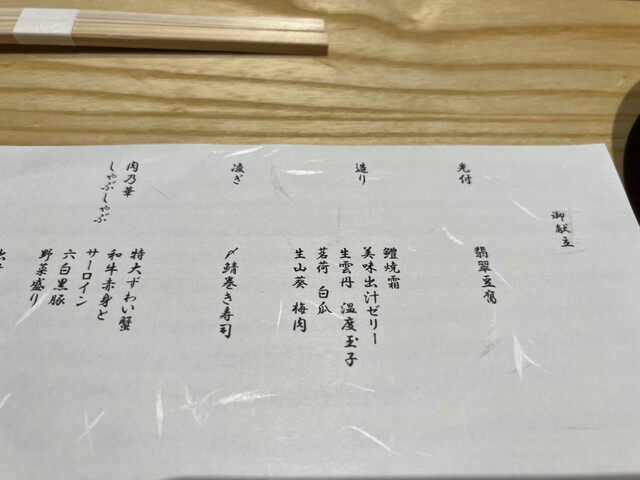 御献立
先付
翡翠豆腐
造り
鱧焼霜
美味出汁ゼリー
生雲丹 温度玉子
茗荷 白瓜
生山葵 梅肉
凌ぎ
〆鯖巻き寿司
肉乃華
しゃぶしゃぶ
特大ずわい蟹
和牛赤身と
サーロイン
六白黒豚
野菜盛り